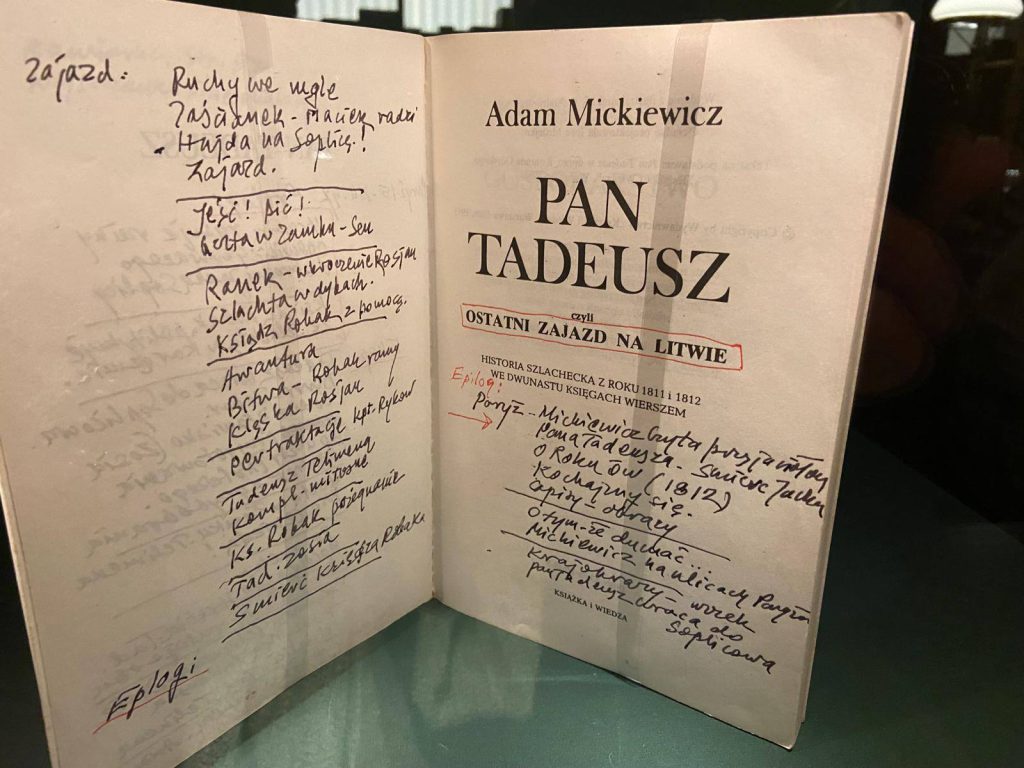 Zajazd:
Ruchy we mgle
Zaścianek - Maciek radzi
Hajda na Soplicę!
Zajazd.
Jeść! Pić!
Gerwazy w Zamku - Sen
Ranek - wkroczenie Rosjan
Szlachta w dybach.
Ksiądz Robak z pomocą.
Awantura
Bitwa - Robak ranny
Klęska Rosjan
Pertraktacje kpt. Ryków
Tadeusz Telimena
kompl. miłosne
Ks. Robak pożegnanie
Tad. Zosia
Śmierć Księdza Robaka
Eplogi
Adam Mickiewicz
PAN
TADEUSZ
czyli
OSTATNI ZAJAZD NA LITWIE
HISTORIA SZLACHECKA Z ROKU 1811 i 1812
WE DWUNASTU KSIĘGACH WIERSZEM
Epilog:
Paryż - Mickiewicz czyta przyjaciołom
Pana Tadeusza - Śmierć Jacka
O Roku Ów (1812)
Kochajmy się.
opisy - obrazy
O tym-że dumać...
Mickiewicz na ulicach Paryża
Krajobrazy - wozek
pan Tadeusz wraca do
Soplicowa
KSIĄŻKA i WIEDZA